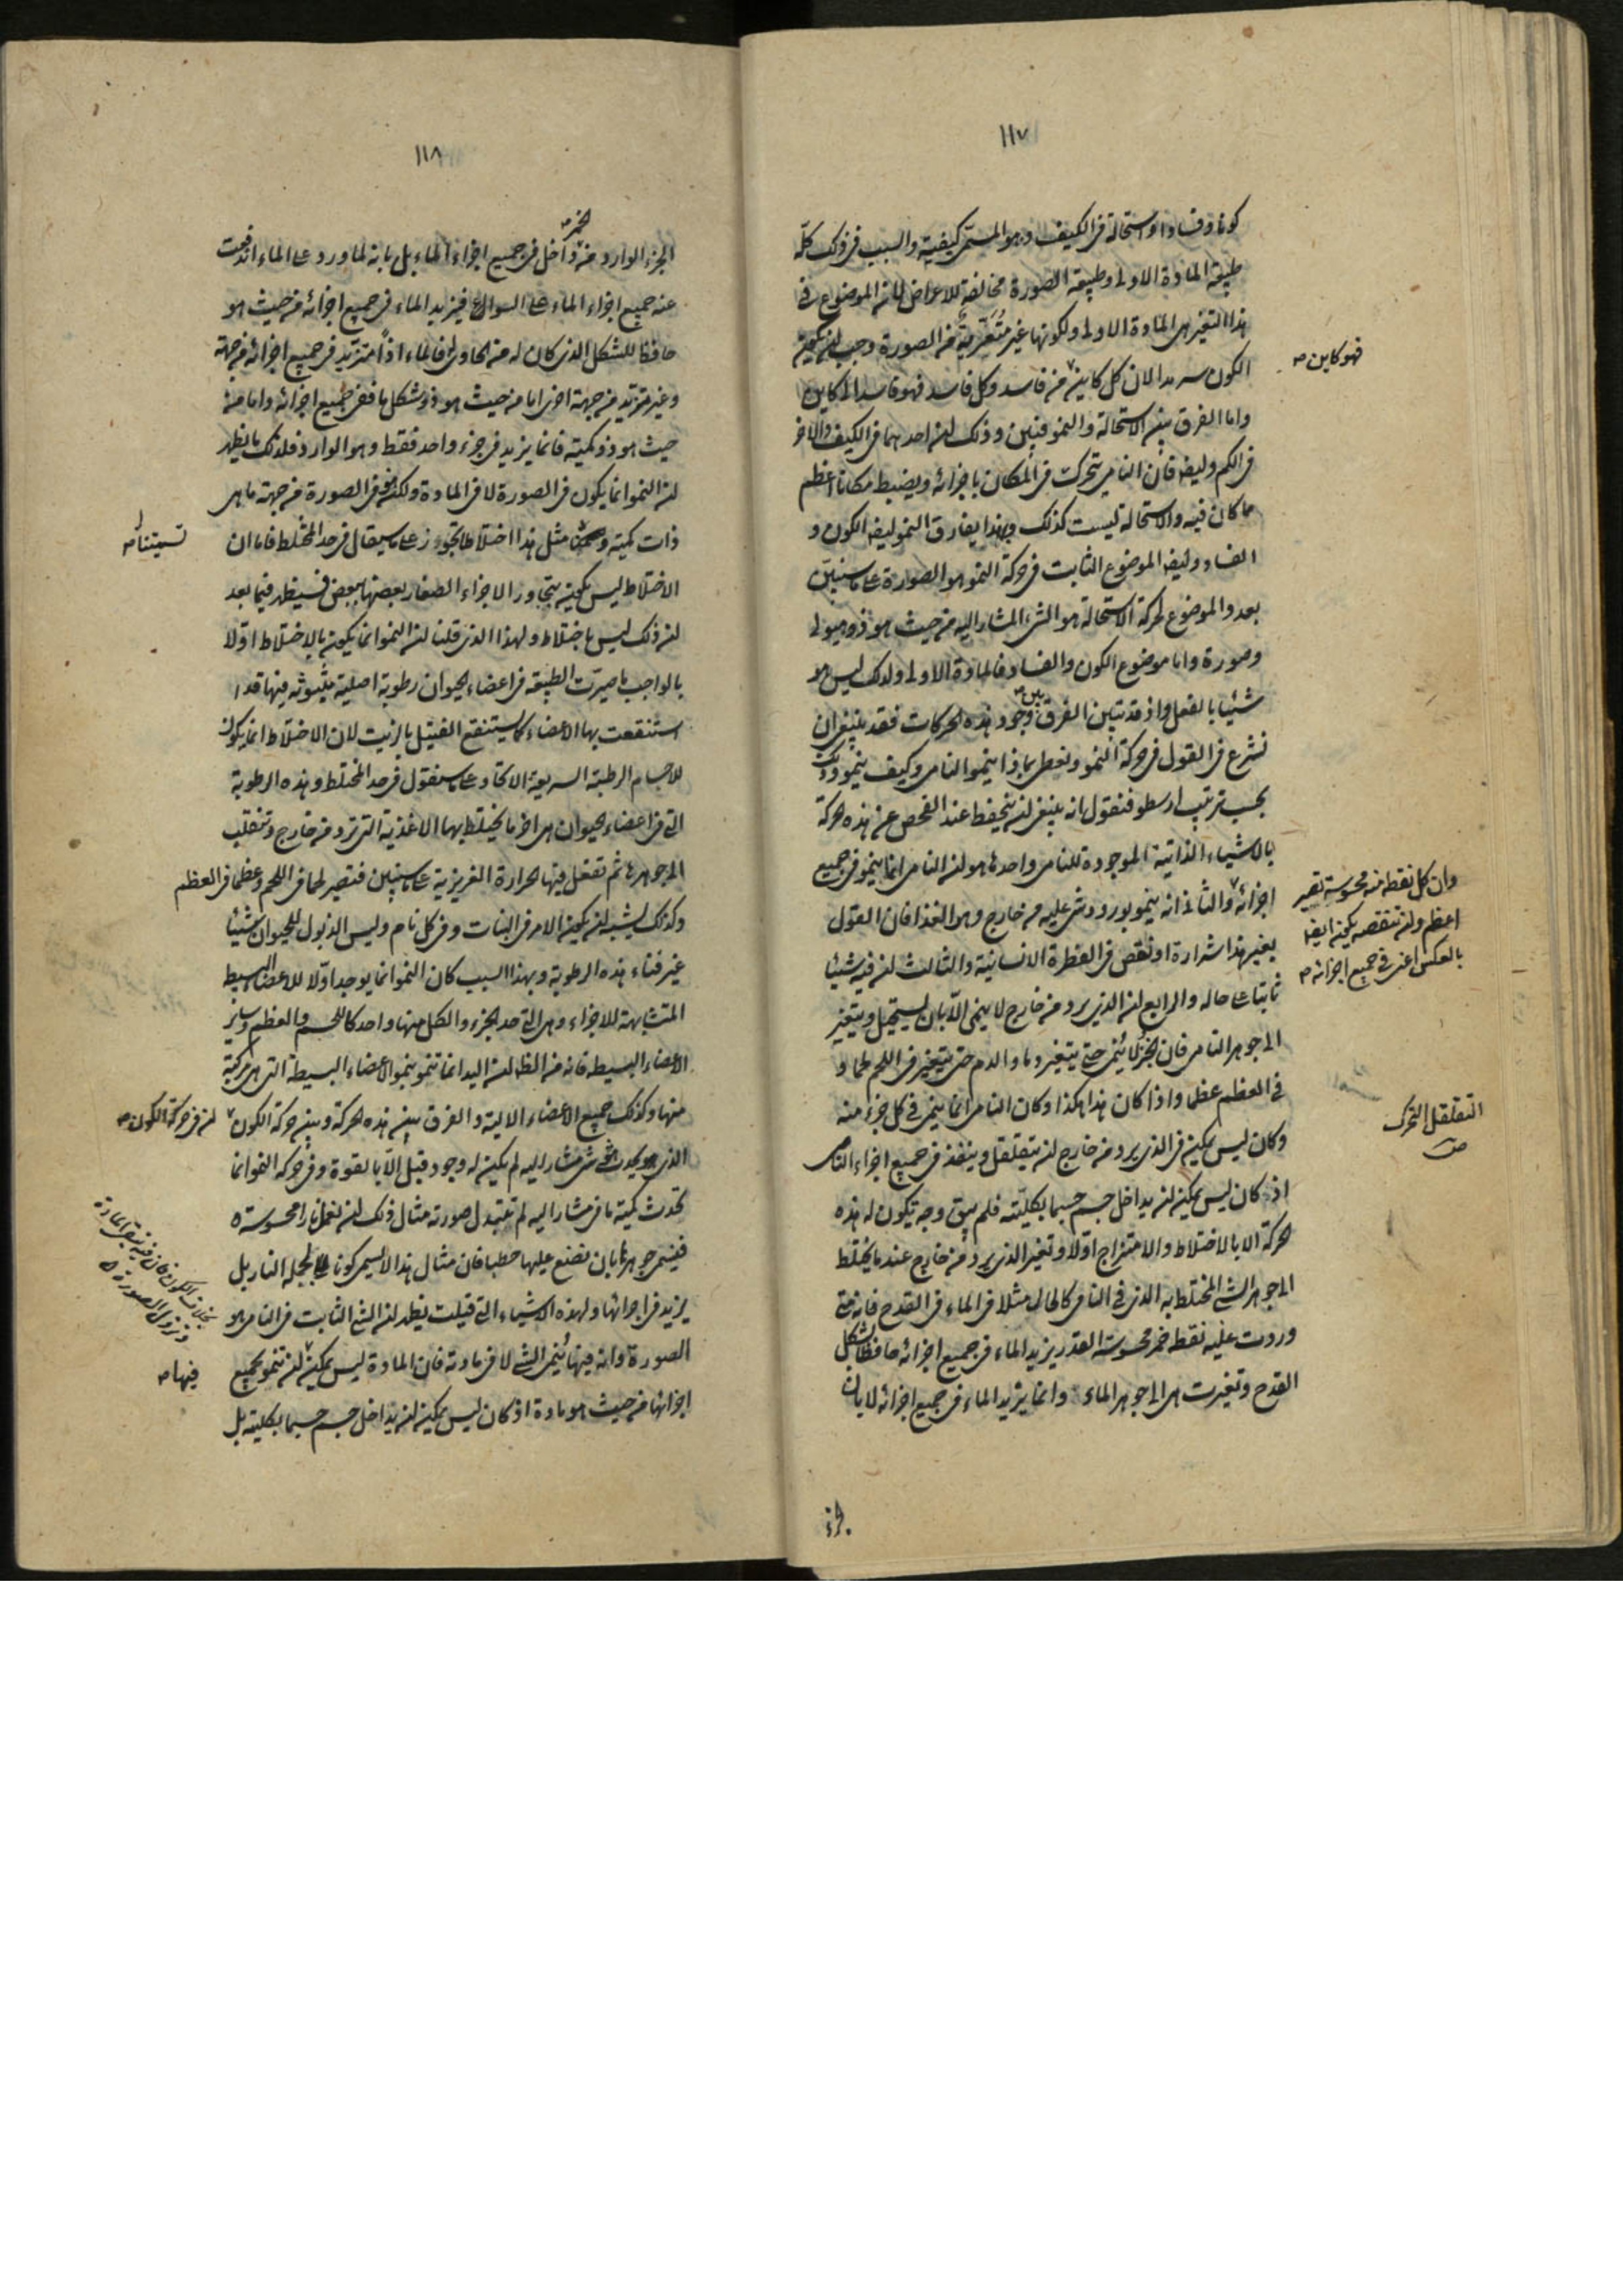 ١١٧
كونا وفسادا واستحالة فى الكيف وهو المسمى كيفية والسبب فى ذلك كله
طبيعة المادة الاولى وطبيعة الصورة مخالفة للاعراض لان الموضوع فى
هذا التغير هى المادة الاولى ولكونها غير متعرية من الصورة وجب ان يكون
الكون سرمدا لان كل كاين فمن فاسد وكل فاسد فهو فاسد الى كاين
فهو كاين صح
واما الفرق بين الاستحالة والنمو فبين وذلك ان احدهما فى الكيف والاخر
فى الكم وايضا فان النامى يتحرك فى المكان باجزائه ويضبط مكانا اعظم
مما كان فيه والاستحالة ليست كذلك وبهذا يفارق النمو ايضا الكون و
الفساد وايضا الموضوع الثابت فى حركة النمو هو الصورة على ما سنبين
بعد والموضوع لحركة الاستحالة هو الشئ المشار اليه من حيث هو ذو هيولى
وصورة واما موضوع الكون والفساد فالمادة الاولى ولذلك ليس هو
شيئا بالفعل واذ قد تبين الفرق بين وجود هذه الحركات فقد ينبغى ان
نشرع فى القول فى حركة النمو ونعطى بماذا ينمو النامى وكيف ينمو وذلك
بحسب ترتيب ارسطو فنقول انه ينبغى ان يتحفظ عند الفحص عن هذه الحركة
بالاشياء الذاتية الموجودة للنامى واحدها هو ان النامى انما ينمو فى جميع
اجزائه والثانى انه ينمو بورود شئ عليه من خارج وهو الغذا فان القول
وان كل نقطة منه محسوسة تصير
اعظم وان تنقصه يكون ايضا
بالعكس اعنى فى جميع اجزائه صح
بغير هذا شرارة او نقص فى الفطرة الانسانية والثالث ان فيه شيئا
ثابتا على حاله والرابع ان الذى يرد من خارج لا ينمى الا بان يستحيل ويتغير
الى جوهر النامى فان الخبز لا ينمى حتى يتغير دما والدم حتى يتغير فى اللحم لحما و
فى العظم عظما واذا كان هذا هكذا وكان النامى انما ينمى فى كل جزء منه
وكان ليس يمكن فى الذى يرد من خارج ان يتقلقل وينفذ فى جميع اجزاء النامى
التقلقل التحرك
ص
اذ كان ليس يمكن ان يداخل جسم جسما بكليته فلم يبق وجه تكون له هذه
الحركة الا بالاختلاط والامتزاج اولا وتغير الذى يرد من خارج عند ما يختلط
الى جوهر الشئ المختلط به الذى فى النامى كالحال مثلا فى الماء فى القدح فانه متى
وردت عليه نقطة خمر محسوسة القدر يزيد الماء فى جميع اجزائه حافظا لشكل
القدح وتغيرت هى الى جوهر الماء وانما يزيد الماء فى جميع اجزائه لا بان
١١٨
الجزء الوارد من الخمر داخل فى جميع اجزاء الماء بل بانه لما ورد على الماء اندفعت
عنه جميع اجزاء الماء على السواء فيزيد الماء فى جميع اجزائه من حيث هو
حافظ للشكل الذى كان له من الحاوى فالماء اذا متزيد فى جميع اجزائه من جهة
وغير متزيد من جهة اخرى اما من حيث هو ذو شكل ما ففى جميع اجزائه واما من
حيث هو ذو كمية فانما يزيد فى جزء واحد فقط وهو الوارد فلذلك ما يظهر
ان النمو انما يكون فى الصورة لا فى المادة ولكنه فى الصورة من جهة ما هى
ذات كمية مثل هذا اختلاطا تجوز على ما سيقال فى حد المختلط فاما ان
تسميتنا صح
الاختلاط ليس يكون بتجاور الاجزاء الصغار بعضها ببعض فسيظهر فيما بعد
ان ذلك ليس باختلاط ولهذا الذى قلنا ان النمو انما يكون بالاختلاط اولا
بالواجب ما صيرت الطبيعة فى اعضاء الحيوان رطوبة اصلية مبثوثة فيها قد
استنقعت بها الاعضاء كما يستنقع الفتيل بالزيت لان الاختلاط انما يكون
للاجسام الرطبة السريعة الاتحاد على ما سنقول فى حد المختلط وهذه الرطوبة
التى فى اعضاء الحيوان هى اخر ما يختلط بها الاغذية التى ترد من خارج وتنقلب
الى جوهرها ثم تفعل فيها الحرارة الغريزية على ما سنبين فتصير لحما فى اللحم وعظما فى العظم
وكذلك يشبه ان يكون الامر فى النبات وفى كل نام وليس الذبول للحيوان شيئا
غير فناء هذه الرطوبة وبهذا السبب كان النمو انما يوجد اولا للاعضاء البسيطة
المتشابهة للاجزاء وهى التى حد الجزء والكل منها واحد كاللحم والعظم وساير
الاعضاء البسيطة فانه من الظاهر ان اليد انما تنمو بنمو الاعضاء البسيطة التى هى مركبة
منها وكذلك جميع الاعضاء الالية والفرق بين هذه الحركة وبين حركة الكون
ان فى حركة الكون صح
الذى هو يحدث شئ مشار اليه لم يكن له وجود قبل الا بالقوة وفى حركة النمو انما
تحدث كمية ما فى مشار اليه لم تتبدل صورته مثال ذلك ان نعمل نارا محسوسة
فينمى جوهرها بان نضع عليها حطبا فان مثال هذا لا يسمى كونا لجملة النار بل
بخلاف الكون فان فيه تبقى المادة
وتزول الصورة
يزيد فى اجزائها ولهذه الاشياء التى قيلت يظهر ان الشئ الثابت فى النامى هو
الصورة وانه فيها ينمى الشئ لا فى مادته فان المادة ليس يمكن ان تنمو بجميع
فيها صح
اجزائها من حيث هو مادة اذ كان ليس يمكن ان يداخل جسم جسما بكليته بل